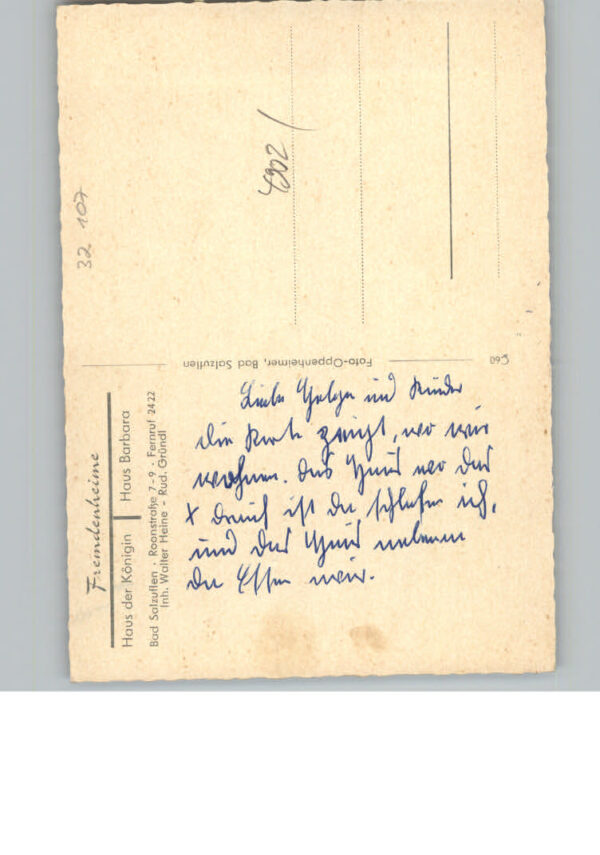 Fremdenheime
Haus der Königin | Haus Barbara
Bad Salzuflen · Roonstraße 7-9 · Fernruf 2422
Inh. Walter Heine - Rud. Gründl
Foto-Oppenheimer, Bad Salzuflen
C60
32 107
4902 /
Liebe Helga und Kinder
die Karte zeigt, wo wir
wohnen. Das Haus wo das
x drauf ist da schlafen ich,
und das Haus nebenan
da Essen wir.